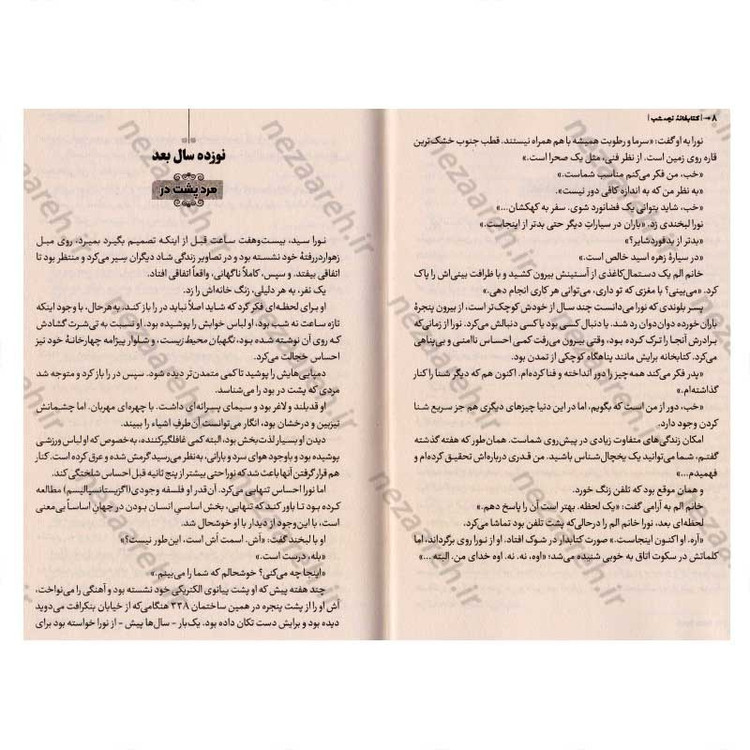 ۸ | کتابخانهٔ نیمه‌شب |
نورا به او گفت: «سرما و رطوبت همیشه با هم همراه نیستند. قطب جنوب خشک‌ترین
قاره روی زمین است. از نظر فنی، مثل یک صحرا است.»
«خب، من فکر می‌کنم مناسب شماست.»
«به نظر من که به اندازه کافی دور نیست.»
«خب، شاید بتوانی یک فضانورد شوی. سفر به کهکشان...»
نورا لبخندی زد. «باران در سیارات دیگر حتی بدتر از اینجاست.»
«بدتر از بدفوردشایر؟»
«در سیارهٔ زهره اسید خالص است.»
خانم الم یک دستمال‌کاغذی از آستینش بیرون کشید و با ظرافت بینی‌اش را پاک
کرد. «می‌بینی؟ با مغزی که تو داری، می‌توانی هر کاری انجام دهی.»
پسر بلوندی که نورا می‌دانست چند سال از خودش کوچک‌تر است، از بیرون پنجرهٔ
باران خورده دوان‌دوان رد شد. یا دنبال کسی بود یا کسی دنبالش می‌کرد. نورا از زمانی که
برادرش آنجا را ترک کرده بود، وقتی بیرون می‌رفت کمی احساس ناامنی و بی‌پناهی
می‌کرد. کتابخانه برایش مانند پناهگاه کوچکی از تمدن بود.
«پدر فکر می‌کند همه‌چیز را دور انداخته و فنا کرده‌ام. اکنون هم که دیگر شنا را کنار
گذاشته‌ام.»
«خب، دور از من است که بگویم، اما در این دنیا چیزهای دیگری هم جز سریع شنا
کردن وجود دارد.
امکان زندگی‌های متفاوت زیادی در پیش‌روی شماست. همان‌طور که هفته گذشته
گفتم، شما می‌توانید یک یخچال‌شناس باشید. من قدری درباره‌اش تحقیق کرده‌ام و
فهمیدم...»
و همان موقع بود که تلفن زنگ خورد.
خانم الم به آرامی گفت: «یک لحظه. بهتر است آن را پاسخ دهم.»
لحظه‌ای بعد، نورا خانم الم را درحالی‌که پشت تلفن بود تماشا می‌کرد.
«آره. او اکنون اینجاست.» صورت کتابدار در شوک افتاد. او از نورا روی برگرداند، اما
کلماتش در سکوت اتاق به خوبی شنیده می‌شد: «اوه، نه. نه. اوه خدای من. البته ...»
نوزده سال بعد
مرد پشت در
نورا سید، بیست‌وهفت ساعت قبل از اینکه تصمیم بگیرد بمیرد، روی مبل
زهواردررفتهٔ خود نشسته بود و در تصاویر زندگی شاد دیگران سیر می‌کرد و منتظر بود تا
اتفاقی بیفتد. و سپس، کاملاً ناگهانی، واقعاً اتفاقی افتاد.
یک نفر، به هر دلیلی، زنگ خانه‌اش را زد.
او برای لحظه‌ای فکر کرد که شاید اصلاً نباید در را باز کند. به‌هرحال، با وجود اینکه
تازه ساعت نه شب بود، او لباس خوابش را پوشیده بود. او نسبت به تی‌شرت گشادش
که روی آن نوشته شده بود، نگهبان محیط‌زیست، و شلوار پیژامه چهارخانهٔ خود نیز
احساس خجالت می‌کرد.
دمپایی‌هایش را پوشید تا کمی متمدن‌تر دیده شود. سپس در را باز کرد و متوجه شد
مردی که پشت در بود را می‌شناسد.
او قدبلند و لاغر بود و سیمای پسرانه‌ای داشت. با چهره‌ای مهربان. اما چشمانش
تیزبین و درخشان بود، انگار می‌توانست آن‌طرفِ اشیاء را ببیند.
دیدن او بسیار لذت‌بخش بود، البته کمی غافلگیرکننده، به‌خصوص که او لباس ورزشی
پوشیده بود و باوجود هوای سرد و بارانی، به‌نظر می‌رسید گرمش شده و عرق کرده است. کنار
هم قرار گرفتن آنها باعث شد که نورا حتی بیشتر از پنج ثانیه قبل احساس شلختگی کند.
اما نورا احساس تنهایی می‌کرد. آن‌قدر او فلسفه وجودی (اگزیستانسیالیسم) مطالعه
کرده بود تا باور کند که تنهایی، بخش اساسیِ انسان بودن در جهانِ اساساً بی‌معنی
است، با این‌وجود از دیدار با او خوشحال شد.
او با لبخند گفت: «اَش. اسمت اَش است، این‌طور نیست؟»
«بله، درست است.»
«اینجا چه می‌کنی؟ خوشحالم که شما را می‌بینم.»
چند هفته پیش که او پشت پیانوی الکتریکی خود نشسته بود و آهنگی را می‌نواخت،
اَش او را از پشت پنجره در همین ساختمان ۳۳۸ هنگامی‌که از خیابان بنکرافت می‌دوید
دیده بود و برایش دست تکان داده بود. یک‌بار - سال‌ها پیش - از نورا خواسته بود برای
nezaareh.ir